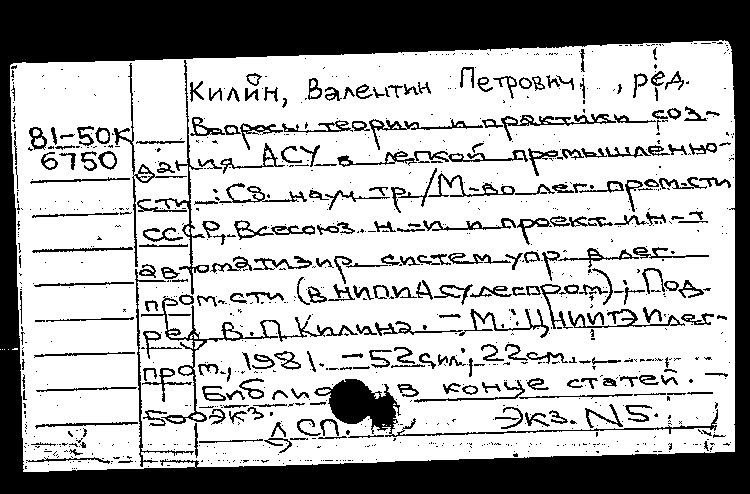 Килин, Валентин Петрович, ред.
81-50К
6750
Вопросы теории и практики соз-
дания АСУ в легкой промышленно-
сти : Сб. науч. тр. / М-во лег. пром-сти
СССР, Всесоюз. н.-и. и проект. ин-т
автоматизир. систем упр. в лег.
пром-сти (ВНИПИАСУлегпром); Под
ред. В. П. Килина. - М. : ЦНИИТЭИлег-
пром, 1981. - 52 с., ил; 22 см.
Библиогр. в конце статей.
500 экз.
ДСП. Экз. N5.